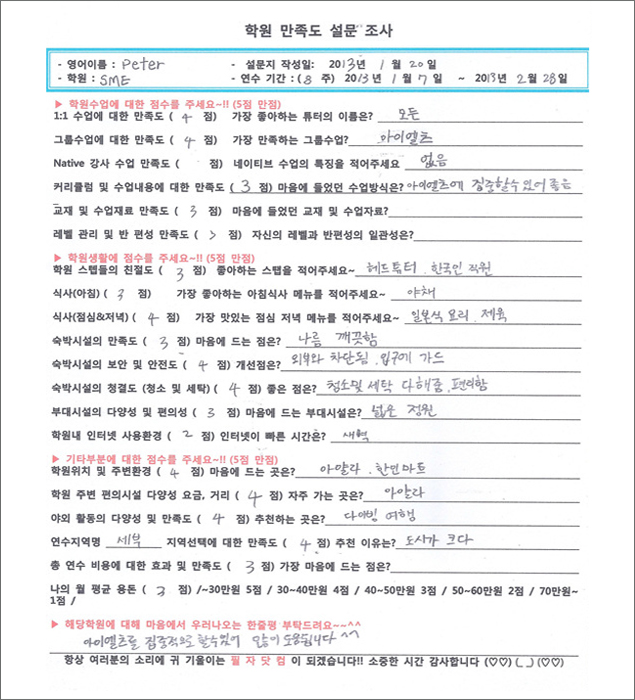 학원 만족도 설문 조사
- 영어이름 : Peter - 설문지 작성일: 2013년 1월 20일
- 학원 : SME - 연수 기간 : (8 주) 2013년 1월 7일 ~ 2013년 2월 28일
▶ 학원수업에 대한 점수를 주세요~!! (5점 만점)
1:1 수업에 대한 만족도 ( 4 점) 가장 좋아하는 튜터의 이름은? 모든
그룹수업에 대한 만족도 ( 4 점) 가장 만족하는 그룹수업? 아이엘츠
Native 강사 수업 만족도 ( 점) 네이티브 수업의 특징을 적어주세요 없음
커리큘럼 및 수업내용에 대한 만족도 ( 3 점) 마음에 들었던 수업방식은? 아이엘츠에 집중할수 있어 좋음
교재 및 수업재료 만족도 ( 3 점) 마음에 들었던 교재 및 수업자료?
레벨 관리 및 반 편성 만족도 ( 점) 자신의 레벨과 반편성의 일관성은?
▶ 학원생활에 점수를 주세요~!! (5점 만점)
학원 스텝들의 친절도 ( 3 점) 좋아하는 스탭을 적어주세요~ 헤드튜터 . 한국인 직원
식사(아침) ( 3 점) 가장 좋아하는 아침식사 메뉴를 적어주세요~ 야채
식사(점심&저녁) ( 4 점) 가장 맛있는 점심 저녁 메뉴를 적어주세요~ 일본식 요리 . 제육
숙박시설의 만족도 ( 3 점) 마음에 드는 점은? 나름 깨끗함
숙박시설의 보안 및 안전도 ( 4 점) 개선점은? 외부와 차단됨 . 입구에 가드
숙박시설의 청결도 (청소 및 세탁) ( 4 점) 좋은 점은? 청소및 세탁 다해줌 . 편리함
부대시설의 다양성 및 편의성 ( 3 점) 마음에 드는 부대시설은? 넓은 정원
학원내 인터넷 사용환경 ( 2 점) 인터넷이 빠른 시간은? 새벽
▶ 기타부분에 대한 점수를 주세요~!! (5점 만점)
학원위치 및 주변환경 ( 4 점) 마음에 드는 곳은? 아얄라 . 한인마트
학원 주변 편의시설 다양성 요금, 거리 ( 4 점) 자주 가는 곳은? 아얄라
야외 활동의 다양성 및 만족도 ( 4 점) 추천하는 곳은? 다이빙 여행
연수지역명 세부 지역선택에 대한 만족도 ( 4 점) 추천 이유는? 도시가 크다
총 연수 비용에 대한 효과 및 만족도 ( 3 점) 가장 마음에 드는 점은?
나의 월 평균 용돈 ( 3 점) /~30만원 5점 / 30~40만원 4점 / 40~50만원 3점 / 50~60만원 2점 / 70만원~
1점 /
▶ 해당학원에 대해 마음에서 우러나오는 한줄평 부탁드려요~~^^
아이엘츠를 집중적으로 할수있어 많이 도움됩니다 ^^
항상 여러분의 소리에 귀 기울이는 필 자 닷 컴 이 되겠습니다!! 소중한 시간 감사합니다 (♡♡) (_ _) (♡♡)